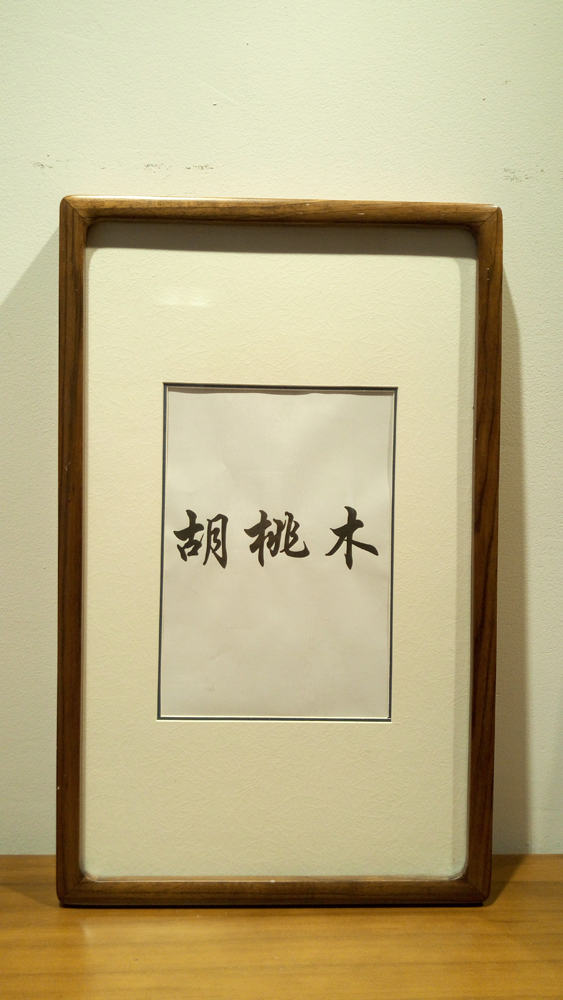 胡桃木